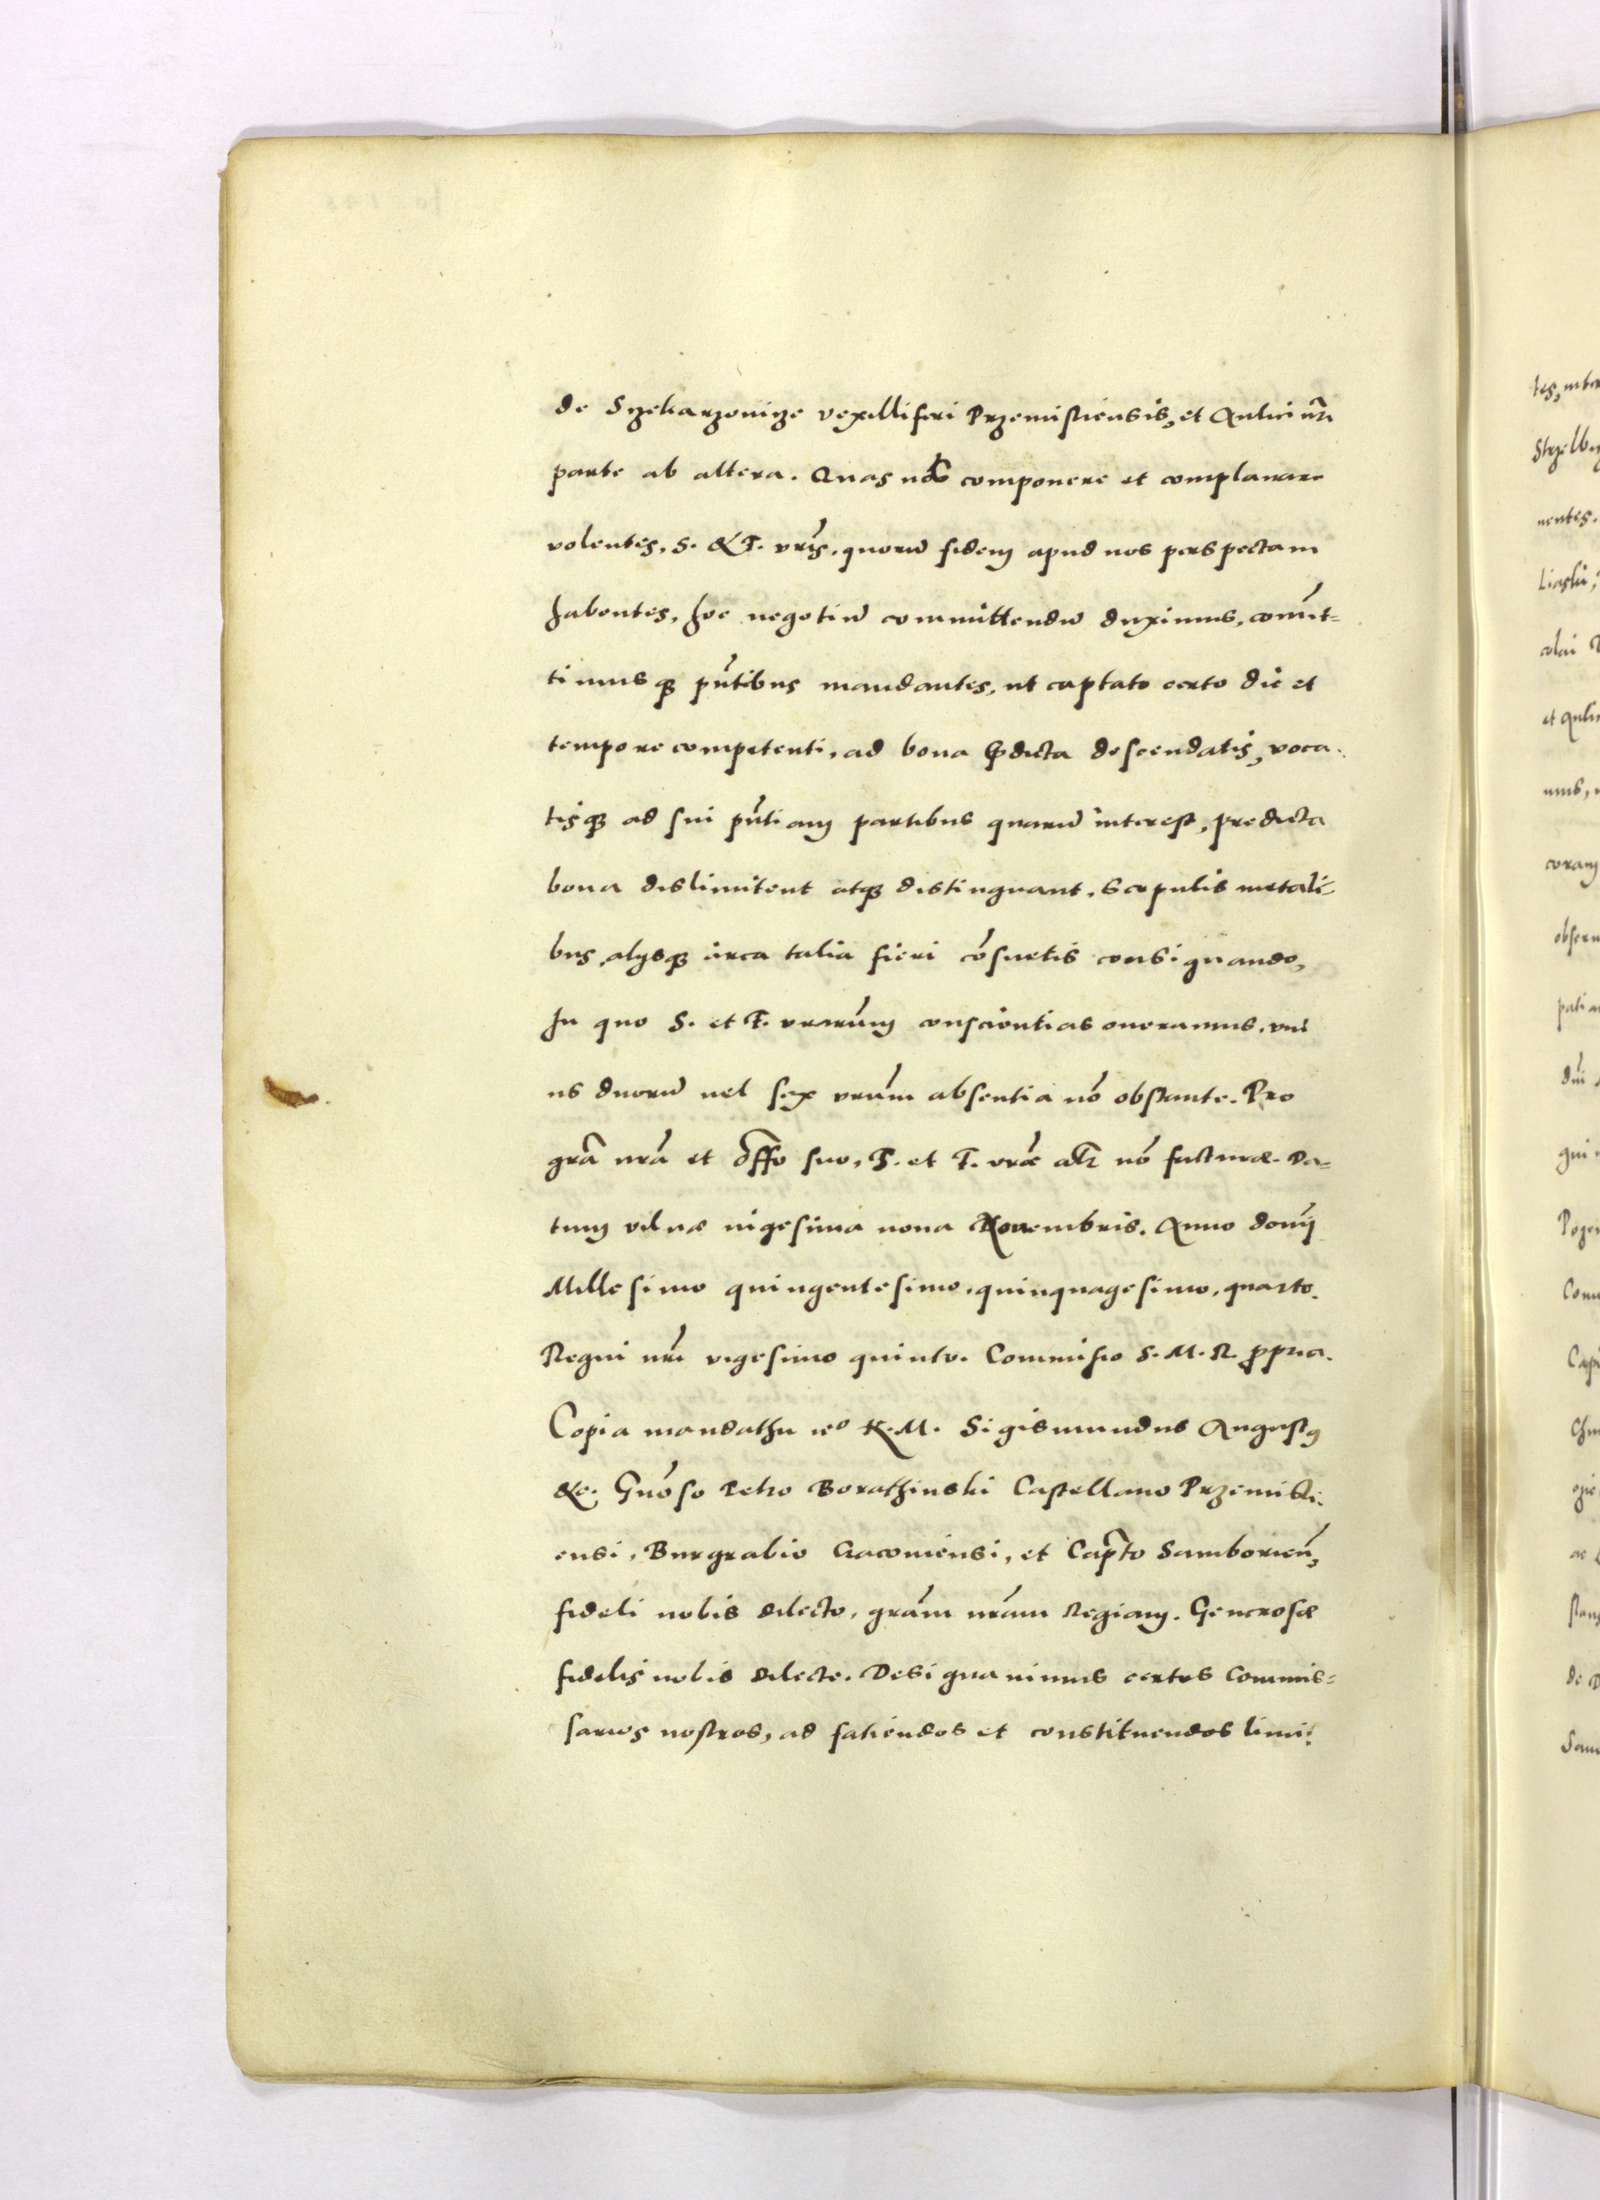 de Szekarzowize vexilliferi Przemisliensis, et Aulici nr̃i
parte ab altera. Quas nos componere et complanare
volentes, S. & T. vrĩs, quorũ fidem apud nos perspectam
habentes, hoc negotiũ committendũ duximus, comĩt=
timusq3 pñtibus mandantes, ut captato certo die et
tempore competenti, ad bona p̃dicta descendatis, voca.
tisq3 ad sui pñtiam partibus quarũ interest, predicta
bona dislimitent atq3 distinguant. Scopulis metali=
bus alijsq3 circa talia fieri cõsuetis consignando,
In quo S. et T. vrarũm conscientias oneramus. uni
us duorũ uel sex vrũm absentia nõ obstante. Pro
grã nrã et offo suo, S. et T. vrãe alr̃ nõ facturæ. Da=
tum vilnæ uigesima nona Nouembris. Anno domĩ
Millesimo quingentesimo, quinquagesimo, quarto.
Regni nrĩ vigesimo quinto. Commisio S. M. R. ppria.
Copia mandathu ie° K. M. Sigismundus Augustus
&c. Gnõso Petro Borathinski Castellano Przemisli.
ensi, Burgrabio Cracouiensi, et Capto Samborieñ,
fideli nobis dilecto, grãm nrãm Regiam. Generosæ
fidelis nobis dilecte. Designauimus certos Commis=
sarios nostros, ad faciendos et constituendos limi:
tes, inter
Strzelb
nentes.
colai
et Auli
mus,
coram
obseru
qui
de
Sam